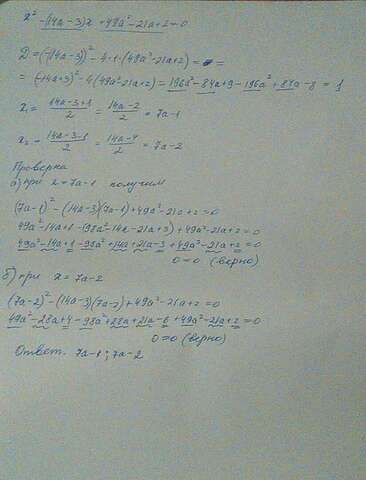 x² - (14a-3)x + 49a² - 21a + 2 = 0
D = (-(14a-3))² - 4·1·(49a² - 21a + 2) = =
= (-14a+3)² - 4(49a² - 21a + 2) = 196a² - 84a + 9 - 196a² + 84a - 8 = 1
x₁ = (14a-3+1)/2 = (14a-2)/2 = 7a-1
x₂ = (14a-3-1)/2 = (14a-4)/2 = 7a-2
Проверка
а) при x = 7a-1 получим
(7a-1)² - (14a-3)(7a-1) + 49a² - 21a + 2 = 0
49a² - 14a + 1 - (98a² - 14a - 21a + 3) + 49a² - 21a + 2 = 0
49a² - 14a + 1 - 98a² + 14a + 21a - 3 + 49a² - 21a + 2 = 0
0 = 0 (верно)
б) при x = 7a-2
(7a-2)² - (14a-3)(7a-2) + 49a² - 21a + 2 = 0
49a² - 28a + 4 - 98a² + 28a + 21a - 6 + 49a² - 21a + 2 = 0
0 = 0 (верно)
Ответ. 7a-1; 7a-2